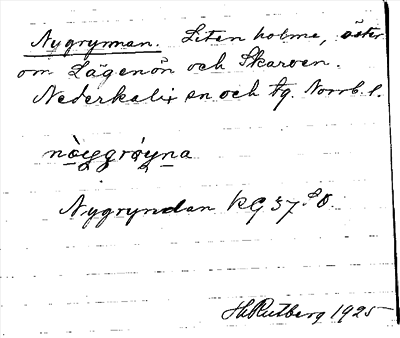 Nygrynnan. Liten holme, öster
om Lågenön och Skarven.
Nederkalix sn och tg. Norrb. l.
nöyggröyna
Nygryndan KG 37
Hj Rutberg 1925